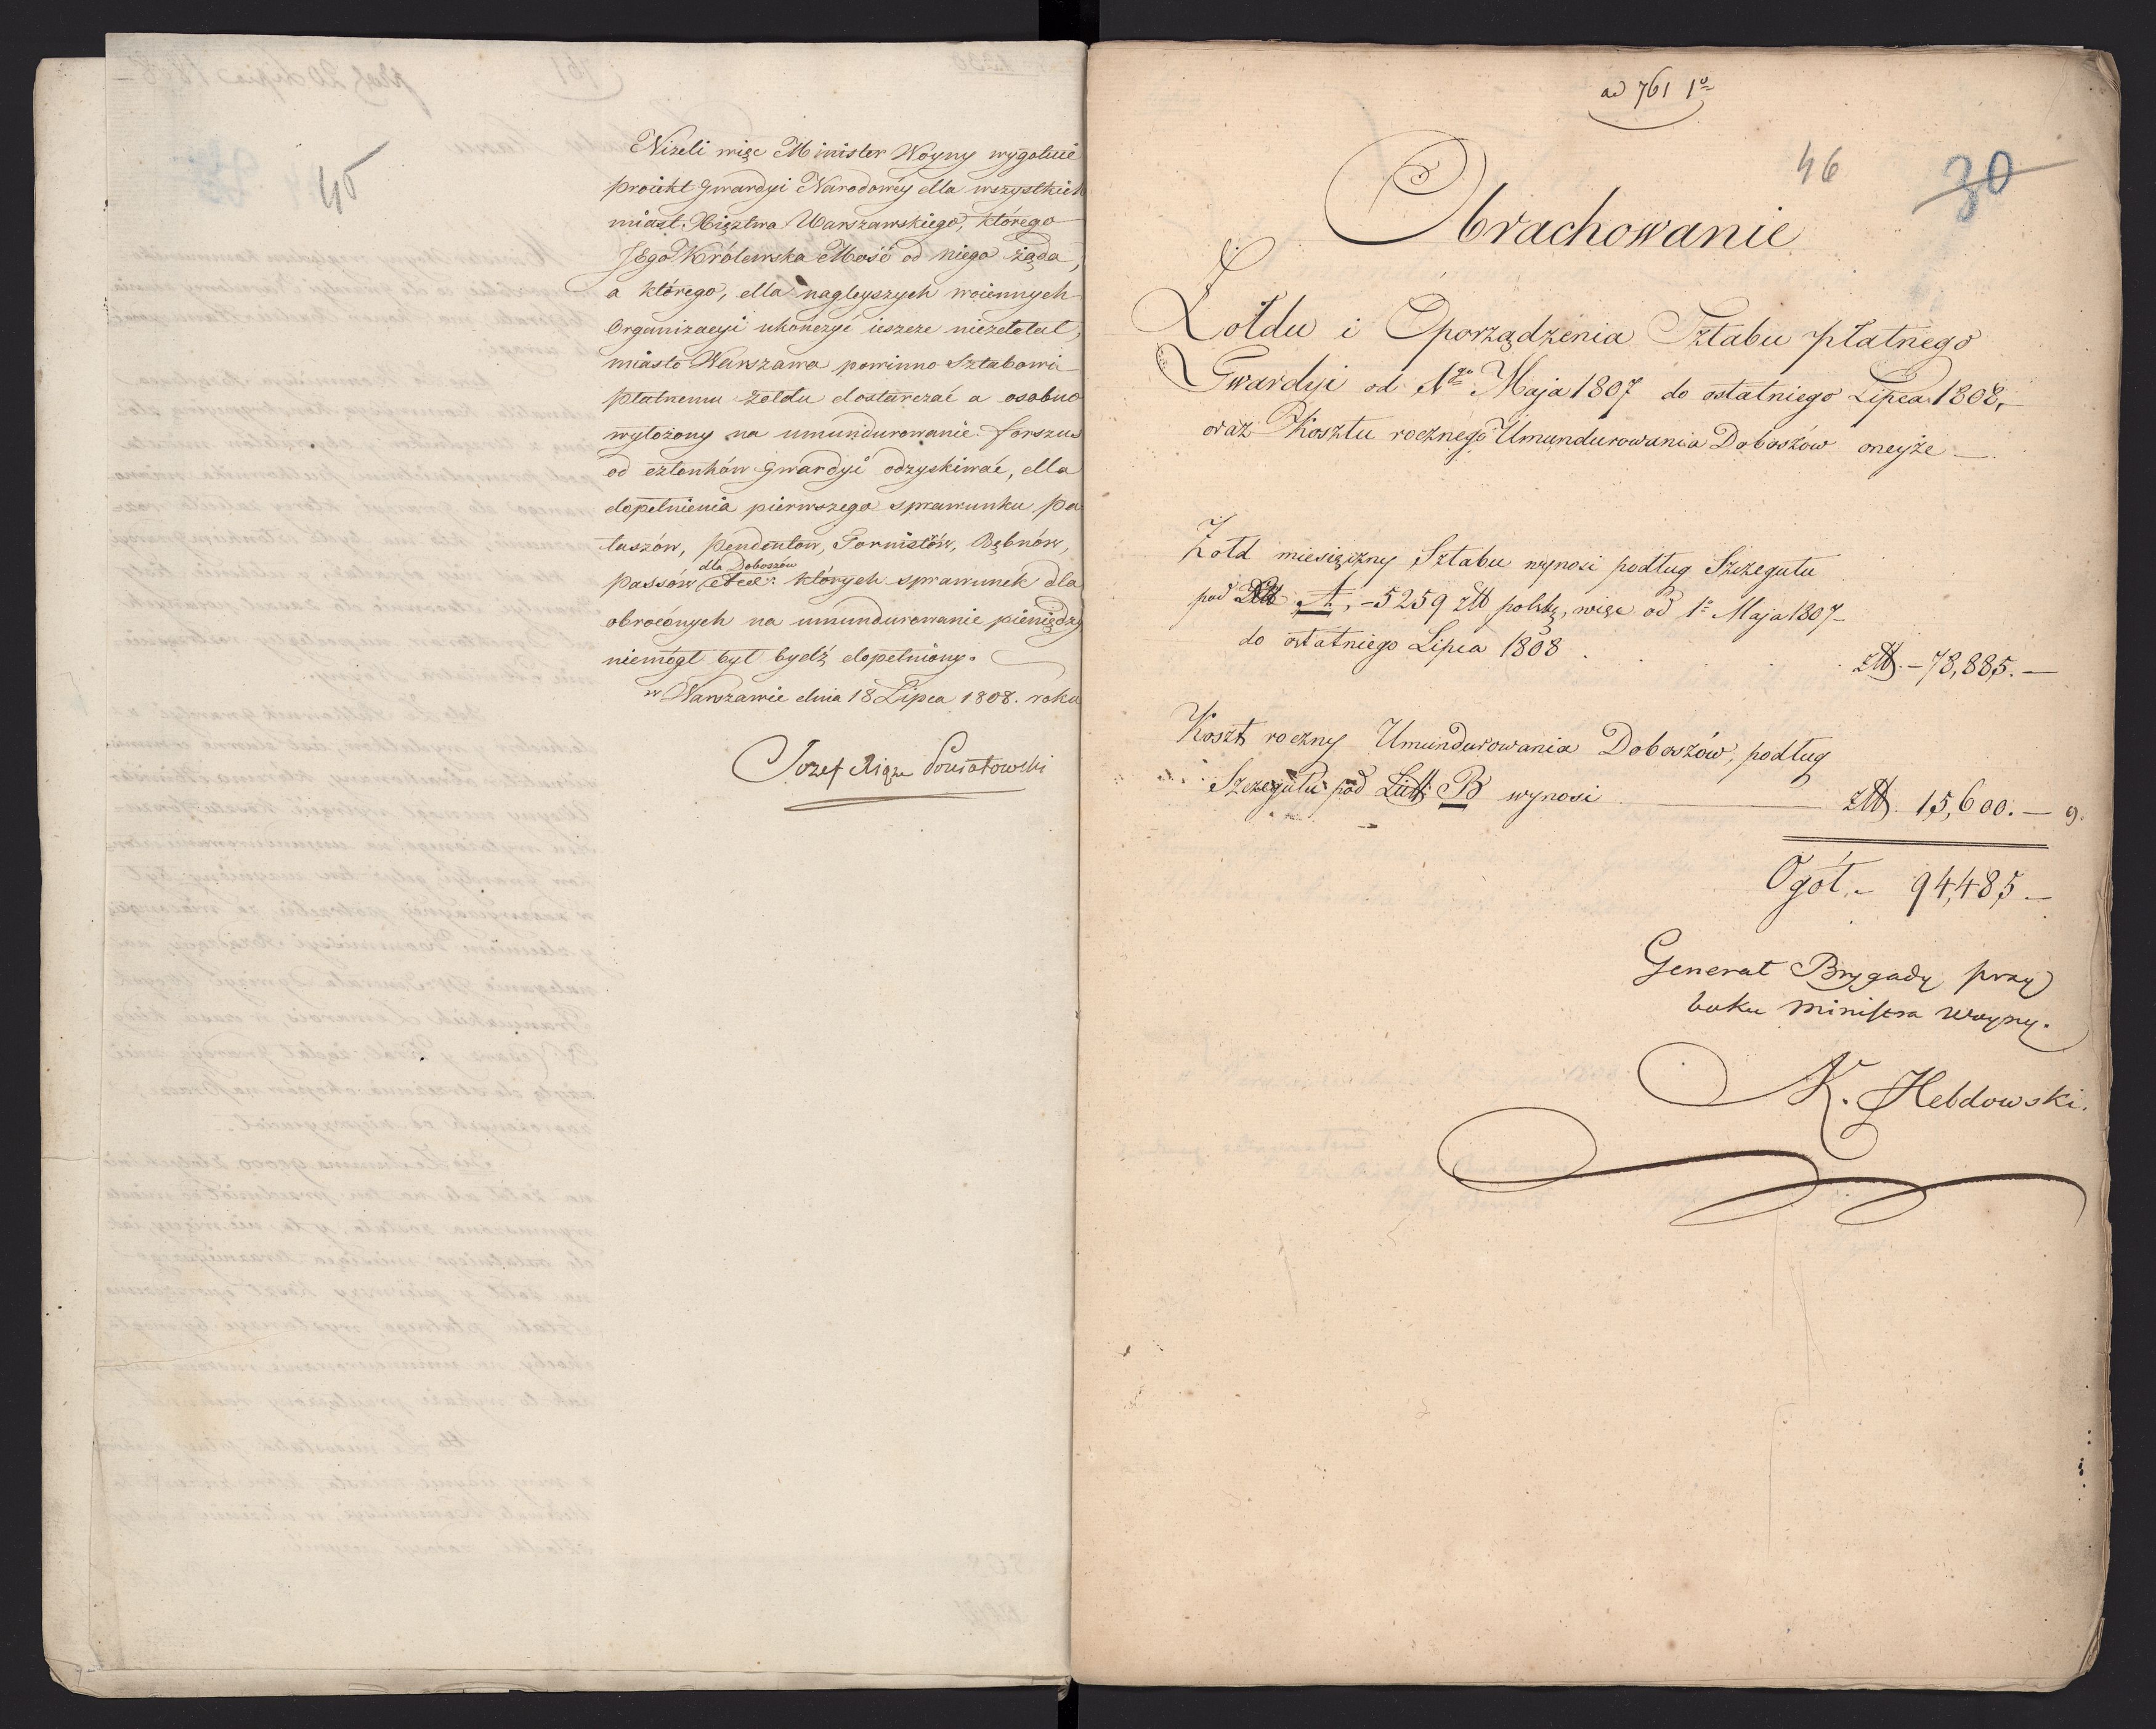 45
Niżeli więc Minister Woyny wygotuie
proiekt Gwardyi Narodowéy dla wszystkich
miast Xięztwa Warszawskiego, którego
JEgo Królewska Mość od niego żąda,
a którego, dla nagleyszych woiennych
Organizacyi ukończyć ieszcze niezdołał,
miasto Warszawa powinno Sztabowi
płatnemu żołdu dostarczać a osobno
wyłożony na umundurowanie forszus
od członków Gwardyi odzyskiwać, dla
dopełnienia pierwszego sprawunku Pa
łaszów, Pendentow, Tornistów, Bębnów,
dla Doboszów
Passów etca: których sprawunek dla
obrócónych na umundurowanie pieniędzy
niemógł był bydź dopełniony.
w Warszawie dnia 18 Lipca 1808. roku
Jozef Xiąże Poniatowski
ad 761 1º
46
30
Obrachowanie
Żołdu i Oporządzenia Sztabu płatnego
Gwardyi od 1go Maja 1807 do ostatniego Lipca 1808,
oraz Kosztu rocznego Umundurowania Doboszów oneyże —
Żołd miesięczny Sztabu wynosi podług Szczegułu
pod A, - 5259 złł polsk, więc od 1º Maja 1807
do ostatniego Lipca 1808 . . . . złł. - 78,885. —
Koszt roczny Umundurowania Doboszów, podług
Szczegułu pod Litt B wynosi — złł. 15,600. — 9.
Ogół. - 94,485 —
Generał Brygady przy
boku Ministra Woyny.
K. Hebdowski.